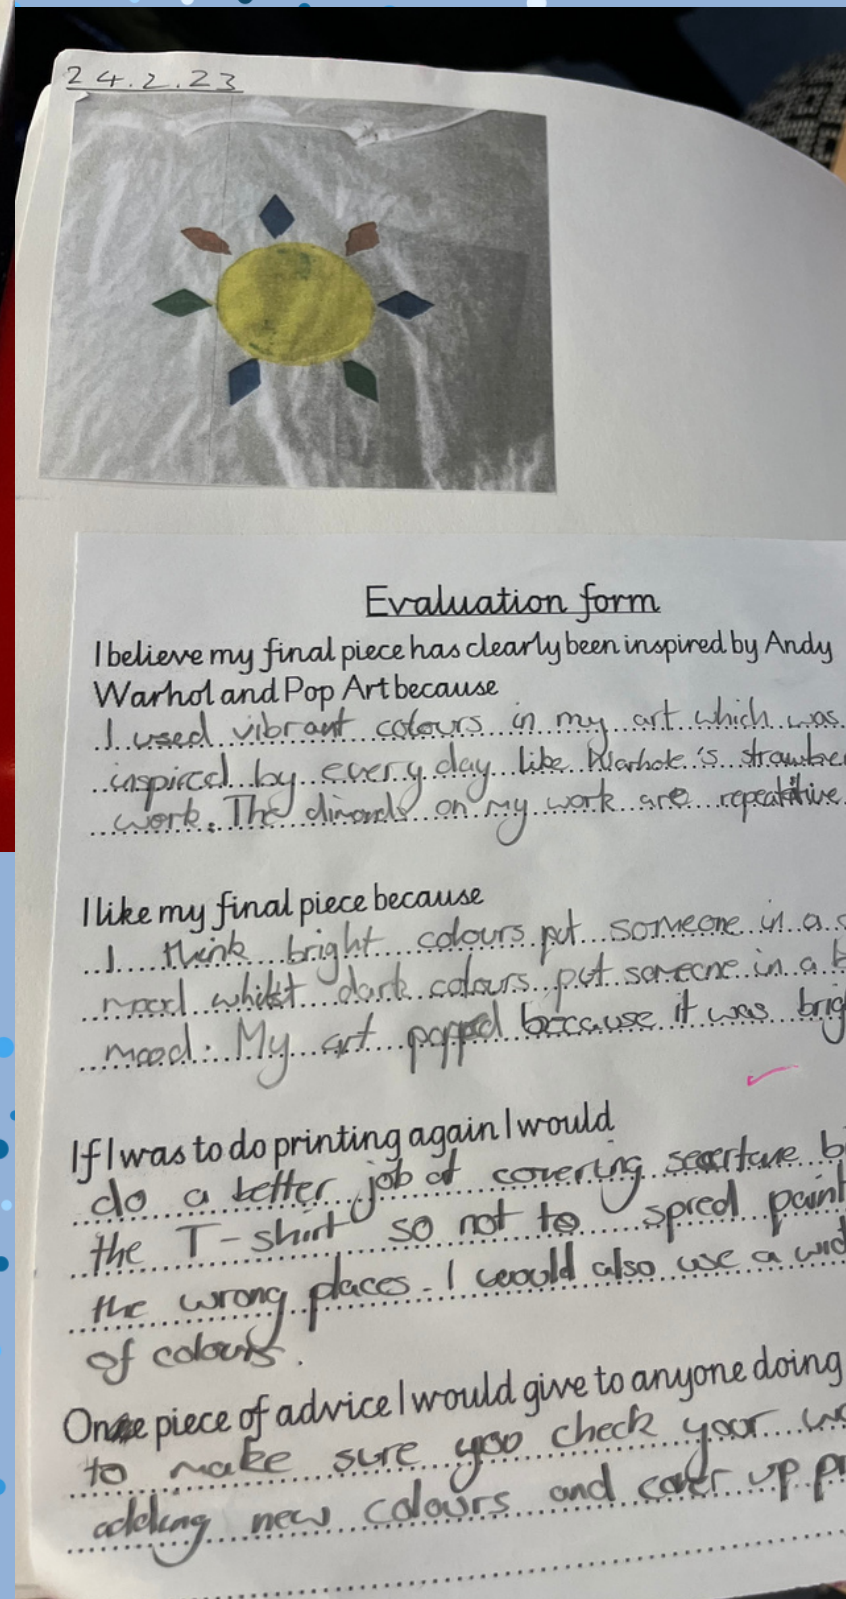 24.2.23
Evaluation form
I believe my final piece has clearly been inspired by Andy
Warhol and Pop Art because
I used vibrant colours in my art which was
inspired by every day like Warhole's strawbe
work. The dimonds on my work are repeatitive
I like my final piece because
I think bright colours put someone in a
mood whilst dark colours put someone in a b
mood. My art popped because it was brig
If I was to do printing again I would
do a better job of covering b
the T-shirt so not to spred paint
the wrong places. I would also use a wid
of colours.
One piece of advice I would give to anyone doing
to make sure you check your wo
adding new colours and cover up pr